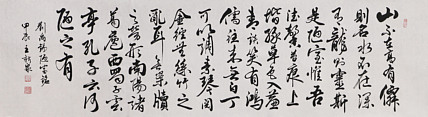 山不在高有僊
則名水不在深
有龍則靈斯
是陋室惟吾
德馨苔痕上
階綠草色入簾
青談笑有鴻
儒往來無白丁
可以調素琴閱
金經無絲竹之
亂耳無案牘
之勞形南陽諸
葛廬西蜀子雲
亭孔子云何
陋之有
劉禹錫陋室銘
甲辰